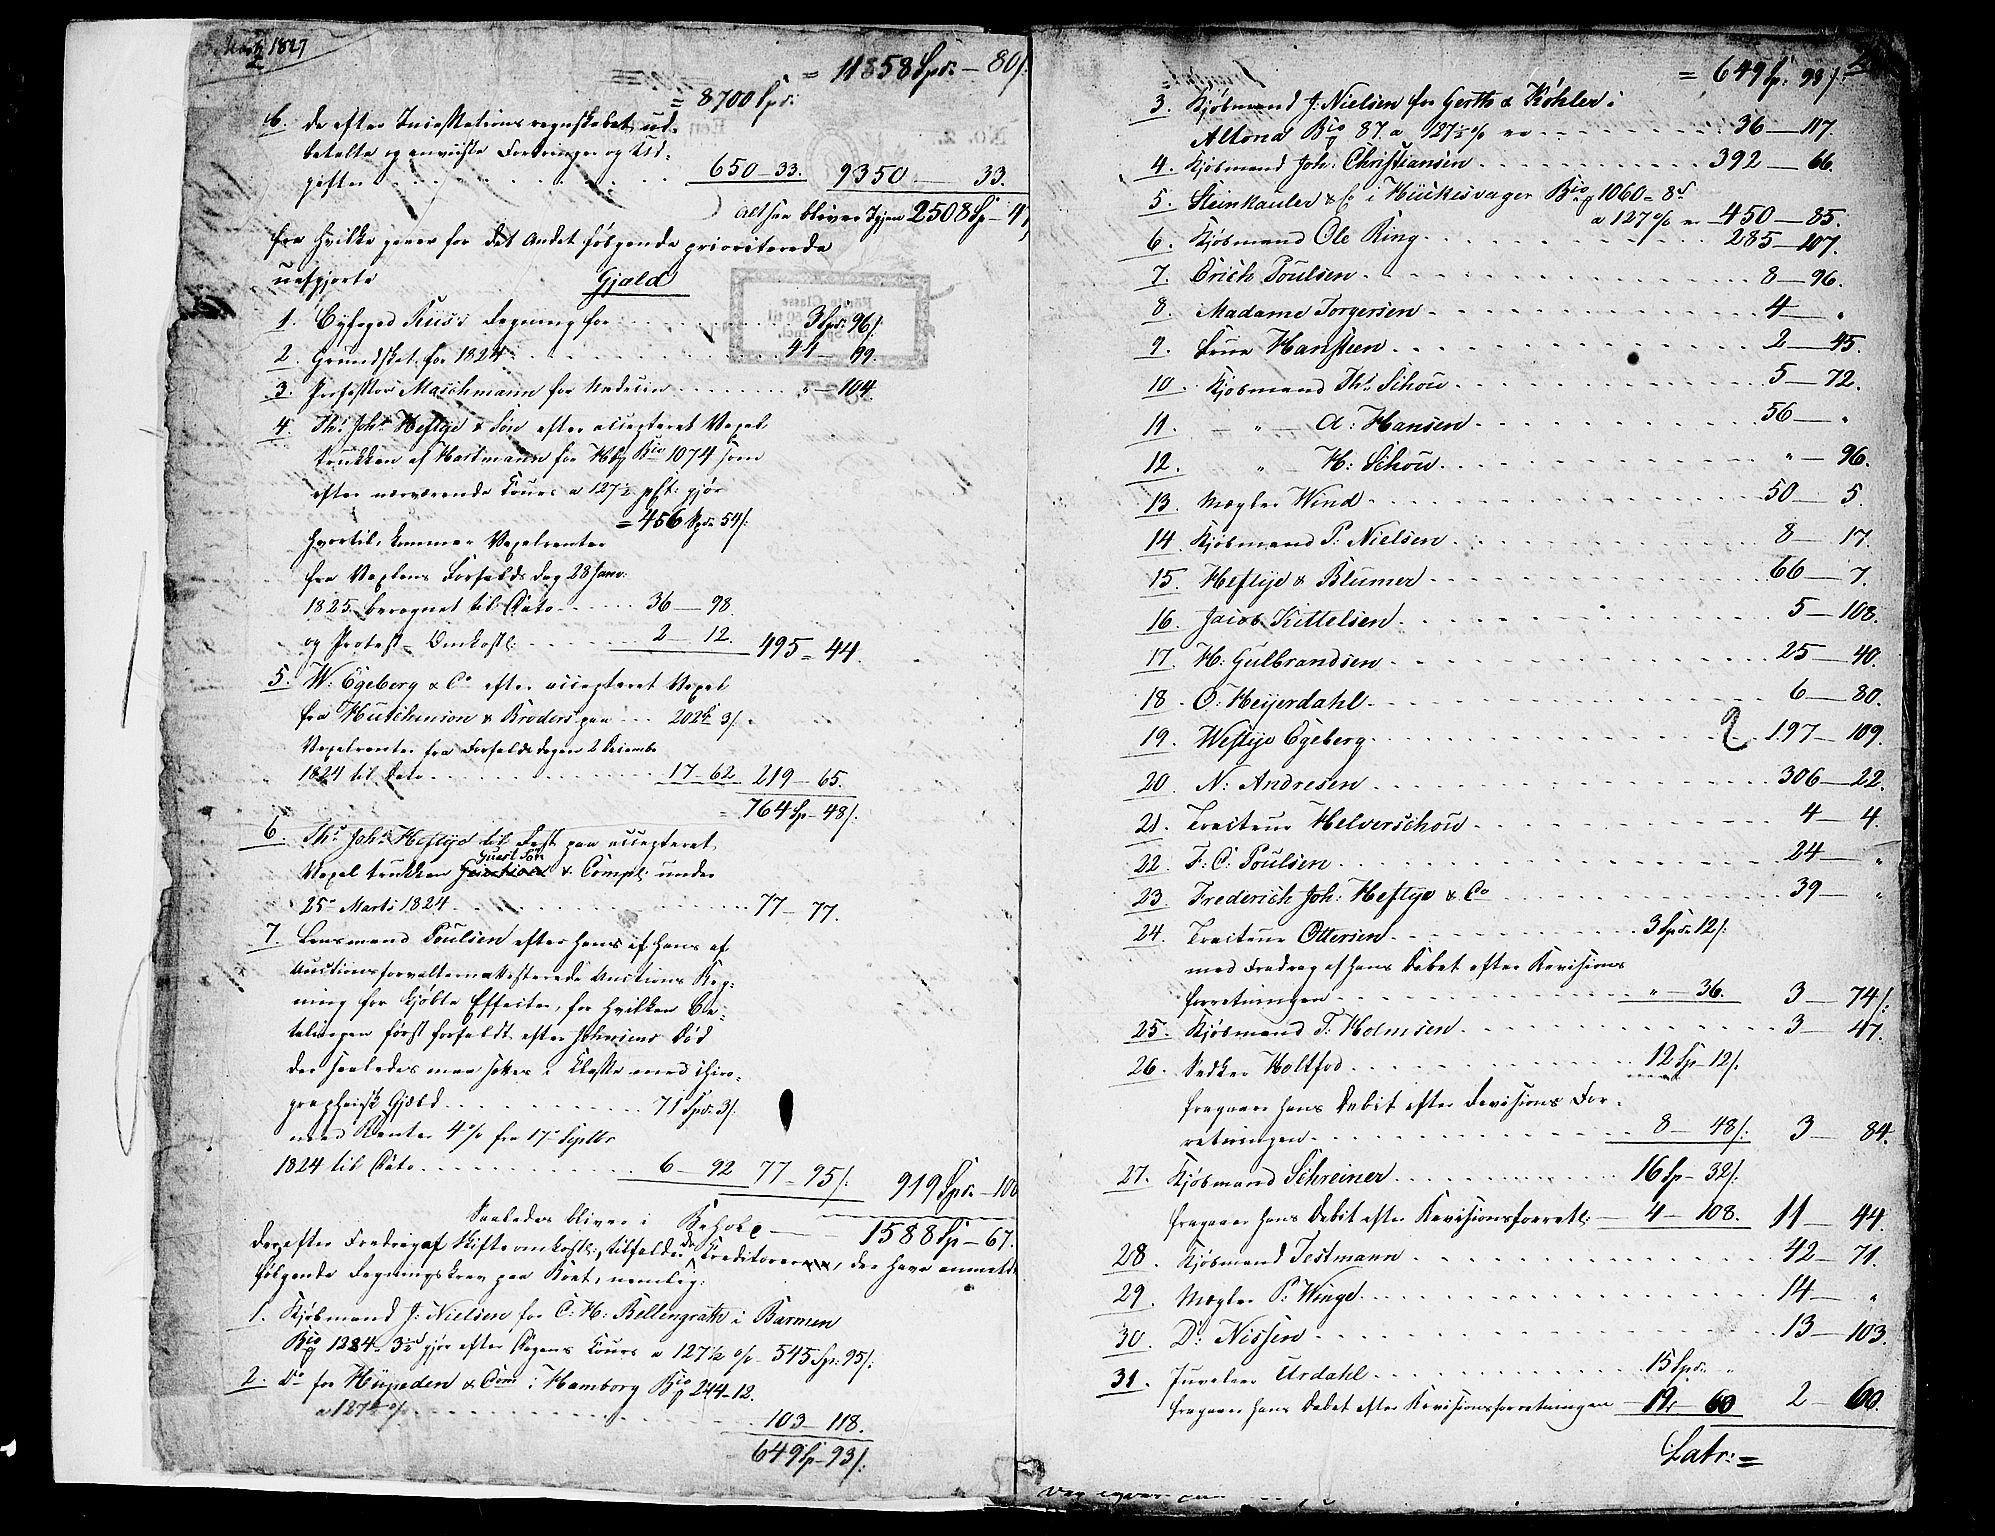 Martz 1827
= 11858 Spd: – 80 s:
= 8700 Spd:
6. de efter Incassations regnskabet ud-
betalte og anviiste Fordringer og Ud-
gifter . . . 650 – 33. 9350 – 33.
altsaa bliver igjen 2508 Sp – 47
fra hvilke gaaer for det Andet følgende prioriterede
uafgjorte Gjæld
1. Byfoged Riis's Regning for . . . 3 Spd: 96 s:
2. Grundskat for 1824 . . . 44 – 99.
3. Professor Maschmann for Medecin . . . " – 104.
4. Ths Johs Heftye & Søn efter accepteret Vexel
trukken af Hartmann for Hbg Bco 1074 som
efter nærværende Cours a 127½ pCt: gjør
= 456 Spd: 54 s:
hvortil kommer Vexelrenter
fra Vexlens Forfaldsdag 28 Janv:
1825 beregnet til Dato . . . 36 – 98.
og Protest-Omkostn: . . . 2 – 12. 495 – 44.
5. W: Egeberg & Co efter accepteret Vexel
fra Hutchinson & Broders paa . . . 202 Sp 3 s.
Vexelrenter fra Forfaldsdagen 2 Decembr
1824 til Dato . . . 17 – 62 219 – 65.
= 764 Sp – 48 s:
6. Ths Johs Heftye til Rest paa accepteret
Vexel trukken & Compe: under
25de Marts 1824 . . . 77 – 77.
7. Lensmand Poulsen efter hans af
Auctionsforvalteren attesterede Auctions Reg-
ning for kjøbte Effecter, for hvilken Be-
talingen først forfaldt efter Johnsens Død
der saaledes maa sættes i Classe med chiro-
graphaisk Gjæld . . . 71 Spd: 3 s:
med Renter 4 % fra 17de Septbr
1824 til Dato . . . 6 – 92 77 – 95 s: 919 Spd: – 100
Saaledes bliver i Behold – 1588 Sp – 67.
der efter Fradrag af Skifteomkostn: tilfalder de Creditorer, der have anmeldt
følgende Regningskrav paa Boet, nemlig:
1. Kjøbmand J: Nielsen for C: H: Bellingrath i Barmen
Bco 1284 – 3½ gjør efter Dagens Cours a 127½ % – 545 Sp: 95 s:
2. Do for Hüpeden & Com i Hamborg Bco 244–12.
a 127½ % . . . 103 – 118.
649 Sp – 93 s:
= 649 Sp: 93 s:
3. Kjøbmand J: Nielsen for Gerth & Köhler i
Altona Bco 87. a 127½ % er . . . 36 – 117.
4. Kjøbmand Joh: Christiansen . . . 392 – 66.
5. Steinkauler & Co i Hückesvager Bco 1060 – 8 s
a 127 % er – 450 – 85.
6. Kjøbmand Ole Ring . . . 285 – 107.
7. Erich Poulsen . . . 8 – 96.
8. Madame Torgersen . . . 4 – "
9. Frue Hansteen . . . 2 – 45.
10. Kjøbmand Ths Schou . . . 5 – 72.
11. – " – A: Hansen . . . 56 – "
12. " – H: Schou . . . " – 96.
13. Mægler Wind . . . 50 – 5.
14. Kjøbmand P: Nielsen . . . 8 – 17.
15. Heftye & Blumer . . . 66 – 7.
16. Jacob Kittelsen . . . 5 – 108.
17. H: Gulbrandsen . . . 25 – 40.
18. O: Heyerdahl . . . 6 – 80.
19. Westye Egeberg . . . 197 – 109.
20. N: Andresen . . . 306 – 22.
21. Traiteur Helverschou . . . 4 – 4.
22. F: C: Poulsen . . . 24 – "
23. Frederich Joh: Heftye & Co . . . 39 – "
24. Traiteur Ottersen . . . 3 Spd: 12 s:
med Fradrag af hans Debet efter Revisions
forretningen . . . " – 36. 3 – 74 s:
25. Kjøbmand T: Holmsen . . . 3 – 47.
26. Vedker Holtfod . . . 12 Sp – 12 s:
fragaaer hans Debit efter Revisions For-
retningen . . . 8 – 48 s: 3 – 84.
27. Kjøbmand Schreiner . . . 16 Sp – 32 s:
fragaaer hans Debit efter Revisionsforretn: – 4 – 108. 11 – 44.
28. Kjøbmand Testmann . . . 42 – 71.
29. Mægler P: Winge . . . 14 – "
30. Dr: Nissen . . . 13 – 103.
31. Juveleer Urdahl . . . 15 Spd: "
fragaaer hans Debet efter Revisionsforretningen – 12 – 60 2 – 60.
Latr: =